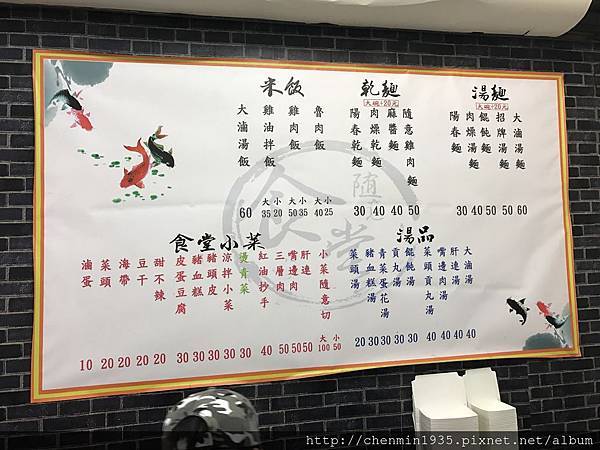 米飯
大滷湯飯
60
雞油拌飯
大 小
35 20
雞肉飯
大 小
50 35
魯肉飯
大 小
40 25
乾麵
大碗+20元
陽春乾麵
30
肉燥乾麵
40
麻醬麵
40
隨意雞肉麵
50
湯麵
大碗+20元
陽春麵
30
肉燥湯麵
40
餛飩湯麵
50
招牌湯麵
50
大滷湯麵
60
食堂小菜
滷蛋
10
菜頭
20
海帶
20
豆干
20
甜不辣
20
皮蛋豆腐
30
豬血糕
30
豬頭皮
30
涼拌小菜
30
燙青菜
30
紅油抄手
40
三層肉
50
嘴邊肉
50
肝連
50
小菜隨意切
大 小
100 50
湯品
菜頭湯
20
豬血糕湯
30
青菜蛋花湯
30
貢丸湯
30
餛飩湯
30
菜頭貢丸湯
40
嘴邊肉湯
40
肝連湯
40
大滷湯
40
http://chenmin1935.pixnet.net/album